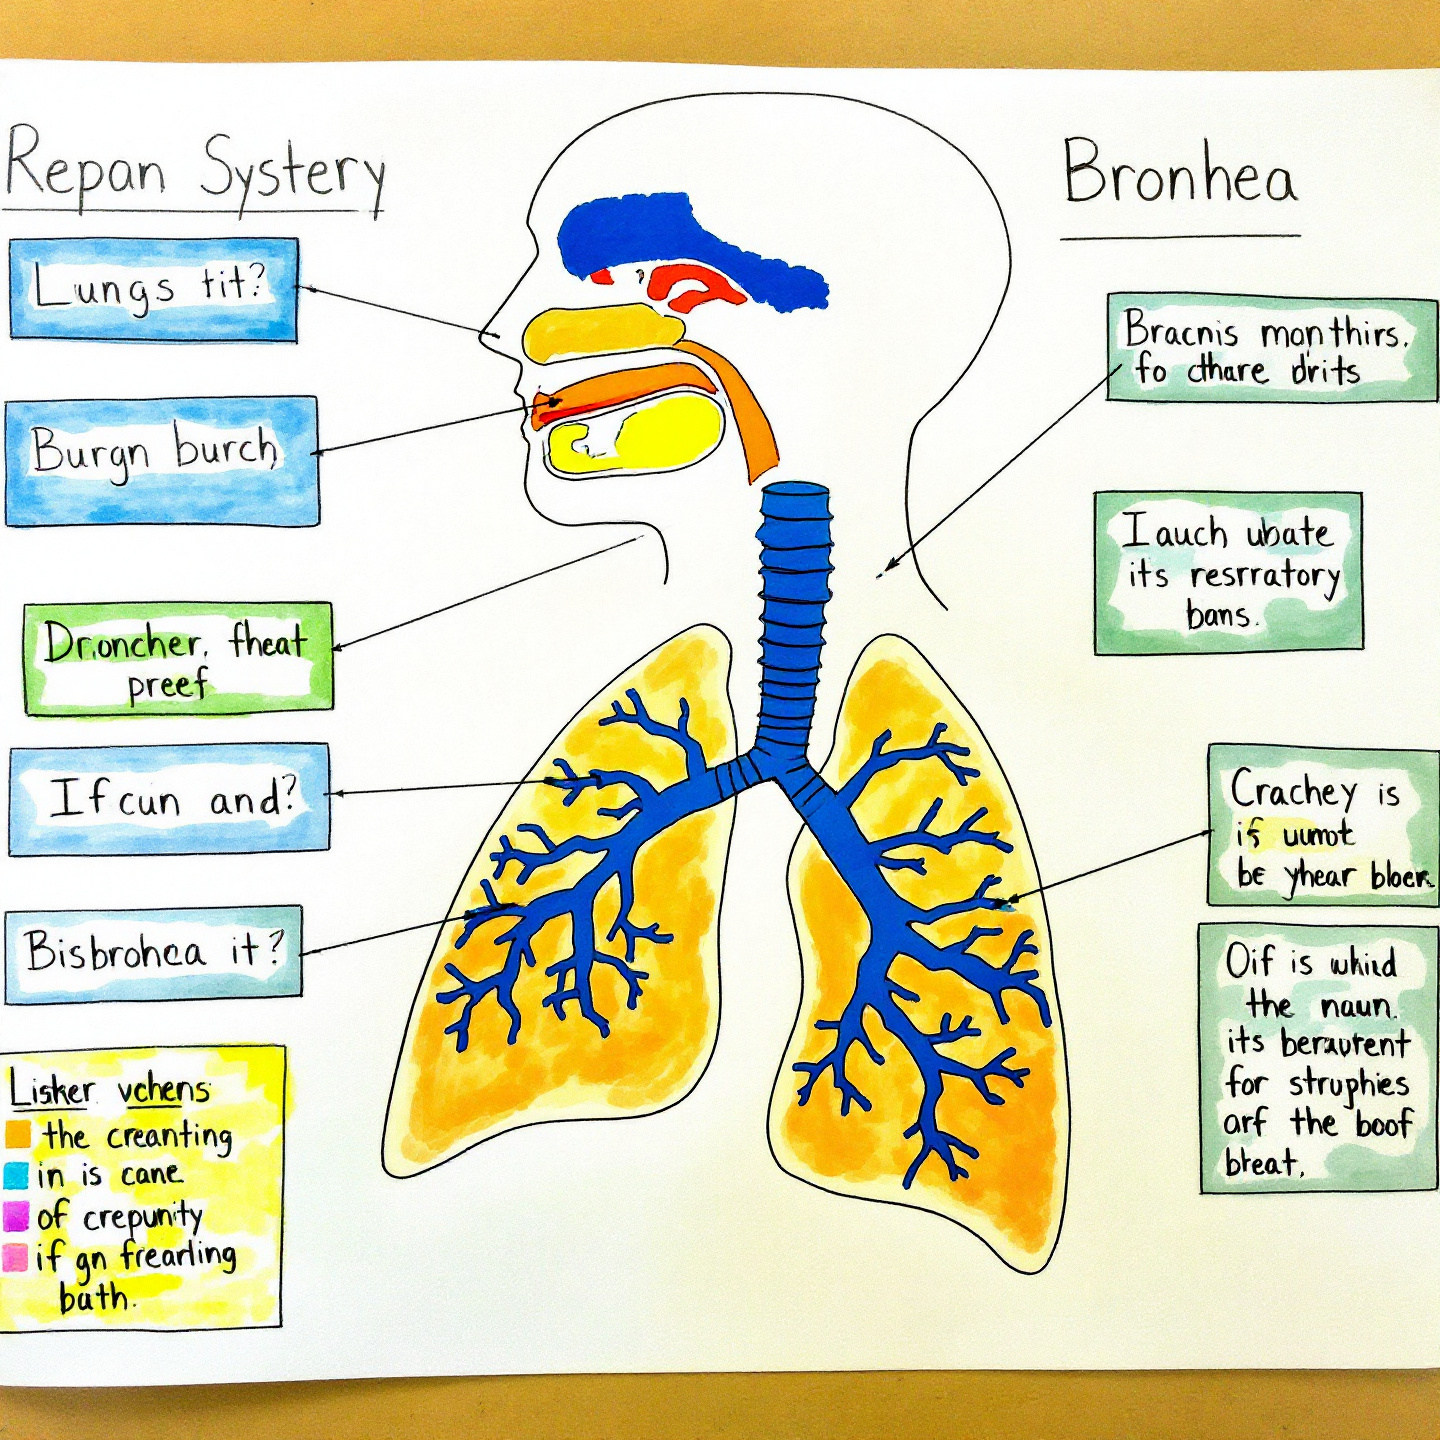 Repan Systery
Lungs tit?
Burgn burch
Dr.oncher. fheat
preef
If cun and?
Bisbrohea it?
Lisker vchens
the creanting
in is cane
of crepunity
if gn frearling
bath.
Bronhea
Bracnis monthirs.
fo cthare drits
Iauch ubate
its resrratory
bans.
Crachey is
if uumot
be yhear bloek
Oif is whiid
the naun.
its beraurent
for struphies
arf the boof
bteat.